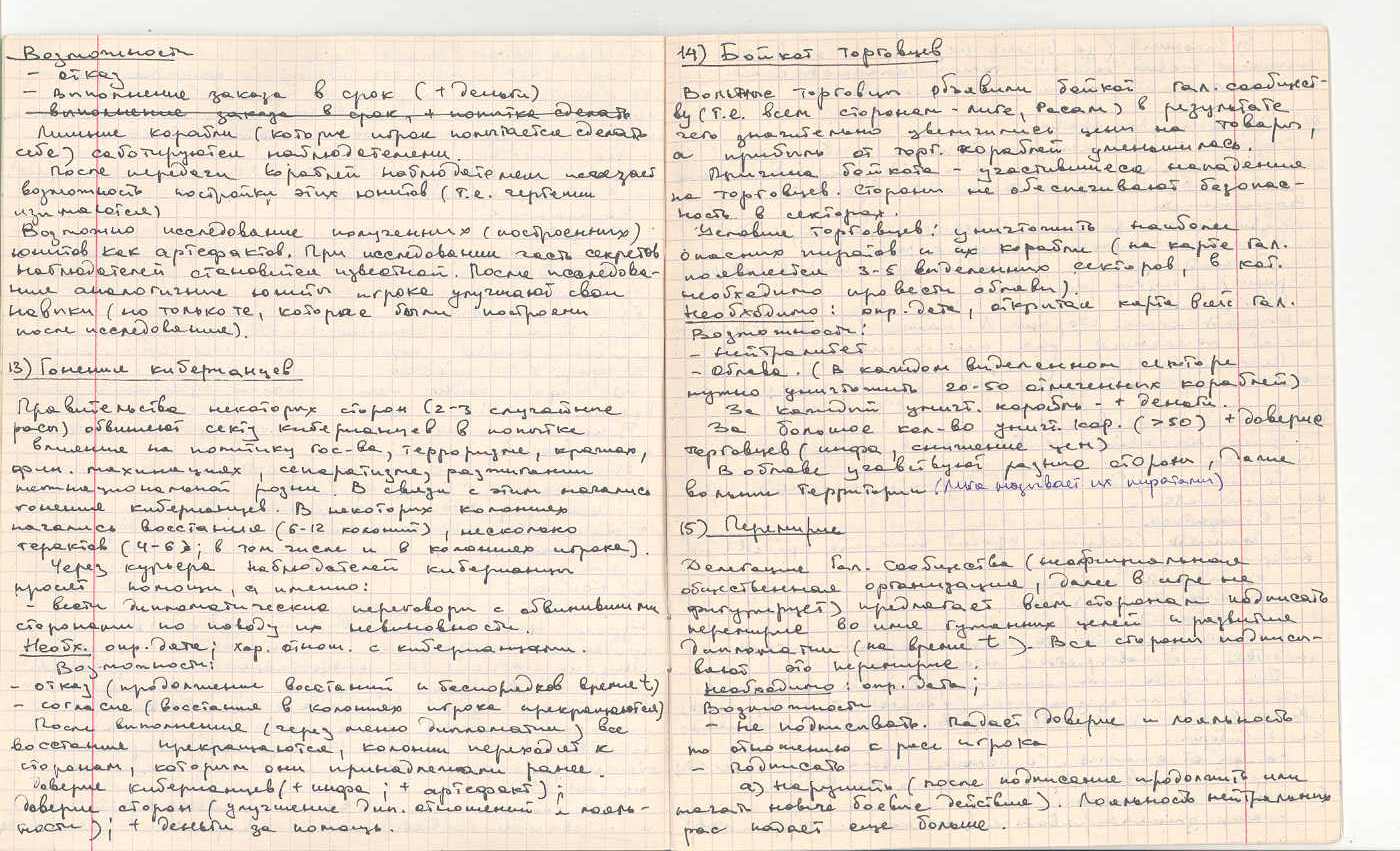 Возможности
- отказ
- выполнение заказа в срок (+ деньги)
- выполнение заказа в срок, + попытка сделать
Лишние корабли (которые игрок попытается сделать
себе) саботируются наблюдателями.
После передачи кораблей наблюдателям исчезает
возможность постройки этих юнитов (т.е. чертежи
изымаются)
Возможно исследование полученных (построенных)
юнитов как артефактов. При исследовании часть секретов
наблюдателей становится известной. После исследова-
ния аналогичные юниты игрока улучшают свои
навыки (но только те, которые были построены
после исследования).
13) Гонения киберианцев
Правительства некоторых сторон (2-3 случайные
расы) обвиняют секту киберианцев в попытке
влияния на политику гос-ва, терроризме, кражах,
фин. махинациях, сепаратизме, разжигании
межнациональной розни. В связи с этим начались
гонения киберианцев. В некоторых колониях
начались восстания (6-12 колоний), несколько
терактов (4-6); в том числе и в колониях игрока).
Через курьера наблюдателей киберианцы
просят помощи, а именно:
- вести дипломатические переговоры с обвинившими
сторонами по поводу их невиновности.
Необх. опр. дата; хор. отнош. с киберианцами.
Возможности:
- отказ (продолжение восстаний и беспорядков время t)
- согласие (восстания в колониях игрока прекращаются)
После выполнения (через меню дипломатии) все
восстания прекращаются, колонии переходят к
сторонам, которым они принадлежали ранее.
доверие киберианцев (+ инфа; + артефакт);
доверие сторон (улучшение дип. отношений и лояль-
ности); + деньги за помощь.
14) Бойкот торговцев
Вольные торговцы объявили бойкот гал. сообщест-
ву (т.е. всем сторонам - лига, расам) в результате
чего значительно увеличились цены на товары,
а прибыль от торг. кораблей уменьшилась.
Причина бойкота - участившиеся нападения
на торговцев. Стороны не обеспечивают безопас-
ность в секторах.
Условие торговцев: уничтожить наиболее
опасных пиратов и их корабли (на карте гал.
появляется 3-5 выделенных секторов, в кот.
необходимо провести облавы).
Необходимо: опр. дата, открытая карта всей гал.
Возможности:
- нейтралитет
- Облава. (В каждом выделенном секторе
нужно уничтожить 20-50 отмеченных кораблей)
За каждый уничт. корабль - + деньги.
За большое кол-во уничт. кор. (>50) + доверие
торговцев (инфа, снижение цен)
В облаве участвуют разные стороны, даже
вольные территории (лига называет их пиратами)
15) Перемирие
Делегация Гал. сообщества (неофициальная
общественная организация, далее в игре не
фигурирует) предлагает всем сторонам подписать
перемирие во имя гуманных целей и развития
дипломатии (на время t). Все стороны подписы-
вают это перемирие.
Необходимо: опр. дата;
Возможности
- не подписывать. Падает доверие и лояльность
по отношению к расе игрока
- Подписать
а) нарушить (после подписания продолжить или
начать новые боевые действия). Лояльность нейтральных
рас падает еще больше.